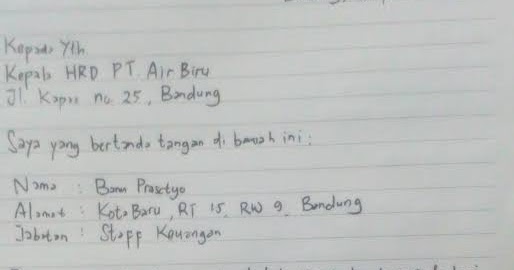 Kepada Yth.
Kepala HRD PT. Air Biru
Jl. Kapas no. 25, Bandung
Saya yang bertanda tangan di bawah ini:
Nama : Prasetyo
Alamat : Kota Baru, RT 15, RW 9, Bandung
Jabatan : Staff Keuangan